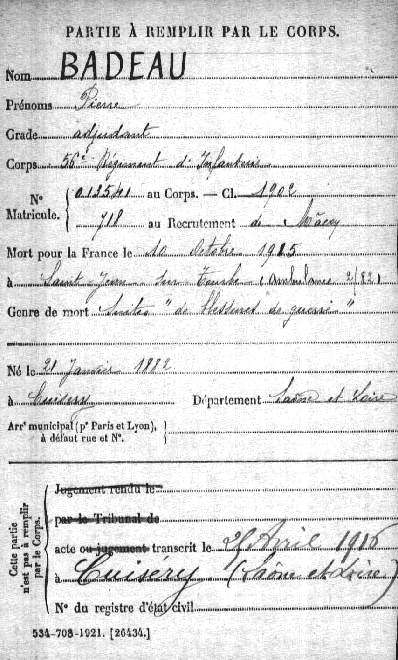 PARTIE À REMPLIR PAR LE CORPS.
Nom BADEAU
Prénoms Pierre
Grade adjudant
Corps 56e Régiment d'Infanterie
N° Matricule. 013541 au Corps. — Cl. 1902
718 au Recrutement de Mâcon
Mort pour la France le 10 Octobre 1915
à Saint Jean sur Tourbe (Ambulance 2/82)
Genre de mort Suites "de blessures de guerre"
Né le 21 Janvier 1882
à Cuisery Département Saône et Loire
Arrt municipal (pr Paris et Lyon), à défaut rue et N°.
Cette partie n'est pas à remplir par le Corps.
Jugement rendu le
par le Tribunal de
acte ou jugement transcrit le Avril 1916
à Cuisery (Saône et Loire)
N° du registre d'état civil
534-708-1921. [26434.]